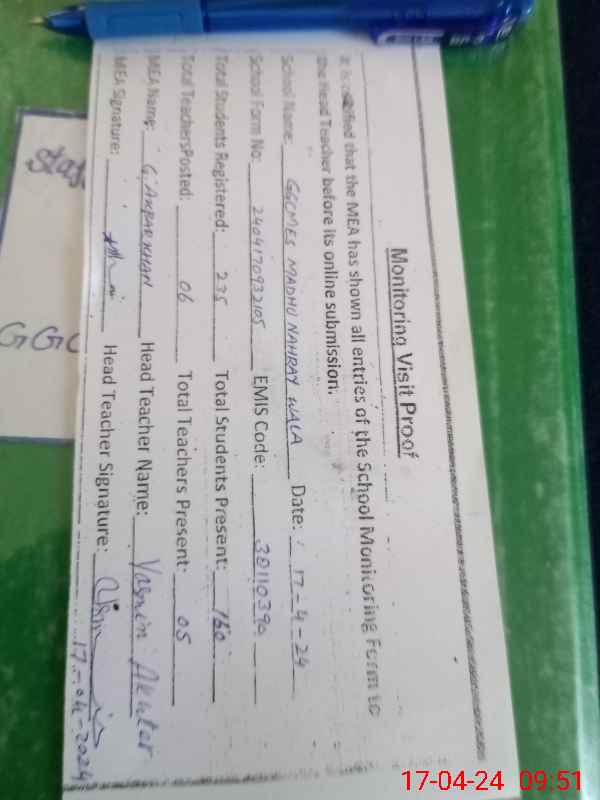 Monitoring Visit Proof
It is certified that the MEA has shown all entries of the School Monitoring Form to
the Head Teacher before its online submission.
School Name: GGCMES MADHU NAHRAY WALA Date: 17-4-24
School Form No: 2404170932105 EMIS Code: 38110390
Total Students Registered: 235 Total Students Present: 160
Total TeachersPosted: 06 Total Teachers Present: 05
MEA Name: G.AKBAR KHAN Head Teacher Name: Yasmin Akhter
MEA Signature: Head Teacher Signature:
17-04-2024
GGC
17-04-24 09:51